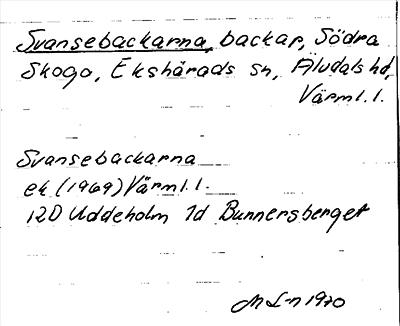 Svansebackarna, backar, Södra
Skoga, Ekshärads sn, Älvdals hd,
Värml. l.
Svansebackarna
ek (1969) Värml. l.
12D Uddeholm 1d Bunnersberget
M L-n 1970